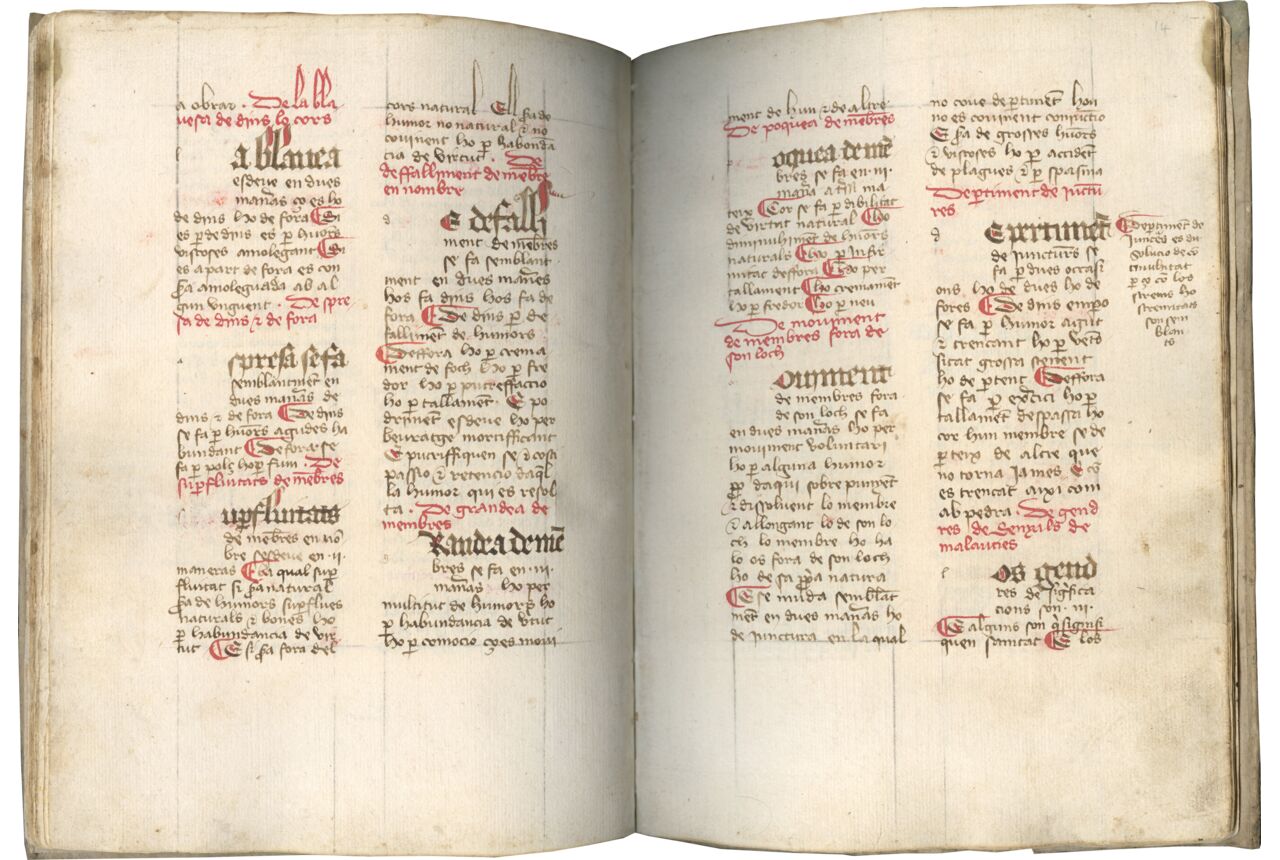 a obrar · De la bla
uesa de dins lo cors
a blauea
esdeue en dues
mañas ço es ho
de dins ho de fora Si
es p dedins es p huōrs
viscoses amolegant Si
es apart de fora es con
fra amoleguada ab al
gun vnguent · De spre
sa de dins ⁊ de fora
spresa se fa
semblantmēt en
dues mañas de
dins ⁊ de fora De dins
se fa p huōrs agudes ha
bundant De fora se
fa p polz ho p fum · De
supfluitats de mēbres
upfluitats
de mēbres en nō
bre sesdeue en ·ii·
maneras la qual sup
fluitat si fra natural
fra de humors supflues
naturals ⁊ bones ho
p habundancia de vir
tut E si fra fora del
cors natural Ell fra de
humor no natural ⁊ no
couinent ho p habondā
cia de virtut · De
deffalliment de mēbre
en nombre
E defalli
ment de mēbres
se fa semblant ·
ment en dues mañes
hos fa dins hos fa de
fora De dins p de
fallimēt de humors
Deffora ho p crema
ment de foch ho p fre
dor ho p putreffactio
ho p tallament · E po
drimēt esdeue ho per
beuratge mortifficant
E putrifiquen se ⁊ costi
passio ⁊ retencio daq̄l
la humor qui es resol
ta · De grandea de
membres
Randea de mē
bres se fa en ·iii·
mañas ho per
multitut de humors ho
p habundancia de v̄tut
ho p comocio ço es moui
ment de hun ⁊ de altre
De poquea de mēbres
oquea de mē
bres se fa en ·iii·
maña
teix Cor se fa p dibilitat
de virtat natural Ho
diminuhimēt de huōrs
naturals Ho p Infir
mitat deffora Ho per
tallament Ho cremament
ho p fredor Ho p neu
De mouiment
de membres fora de
son loch
ouiment
de membres fora
de son loch se fa
en dues mañas ho per
mouiment voluntari
ho p alguna humor
daqui sobre punyēt
⁊ dissoluent lo membre
⁊ allongant lo de son lo
ch lo membre ho ha
lo os fora de son loch
ho de sa p̄pa natura
E se muda semblāt
mēt en dues mañas ho
de iunctura en la qual
14
no coue deptimēt hon
no es couinent coniūctio
E fra de grosses huōrs
⁊ viscoses ho p accidēt
de plagues ⁊ p spasma
Deptiment de iūctu
res
E partimēt
de iuncturs se
fa p dues occasi
ons ho de dues ho de
fores De dins empo
se fa p humor agut
⁊ trencant ho p vēto
sitat grossa stenent
ho de ptent Deffora
se fa p exercici ho p
tallamēt despassa ho
cor hun membre se de
pteix de altre que
no torna iames E cō
es trencat axi com
ab pedra · De gend
res de senyals de
malauties
os gend
res de sīgīfica
cions son ·iii·
E alguns son q̄ signifi
quen sanitat E los
Deptiment de
iunc̄es es di
solucio de cō
tinuitat
p ço co los
strems ho
stremitats
son sem
blan
ts